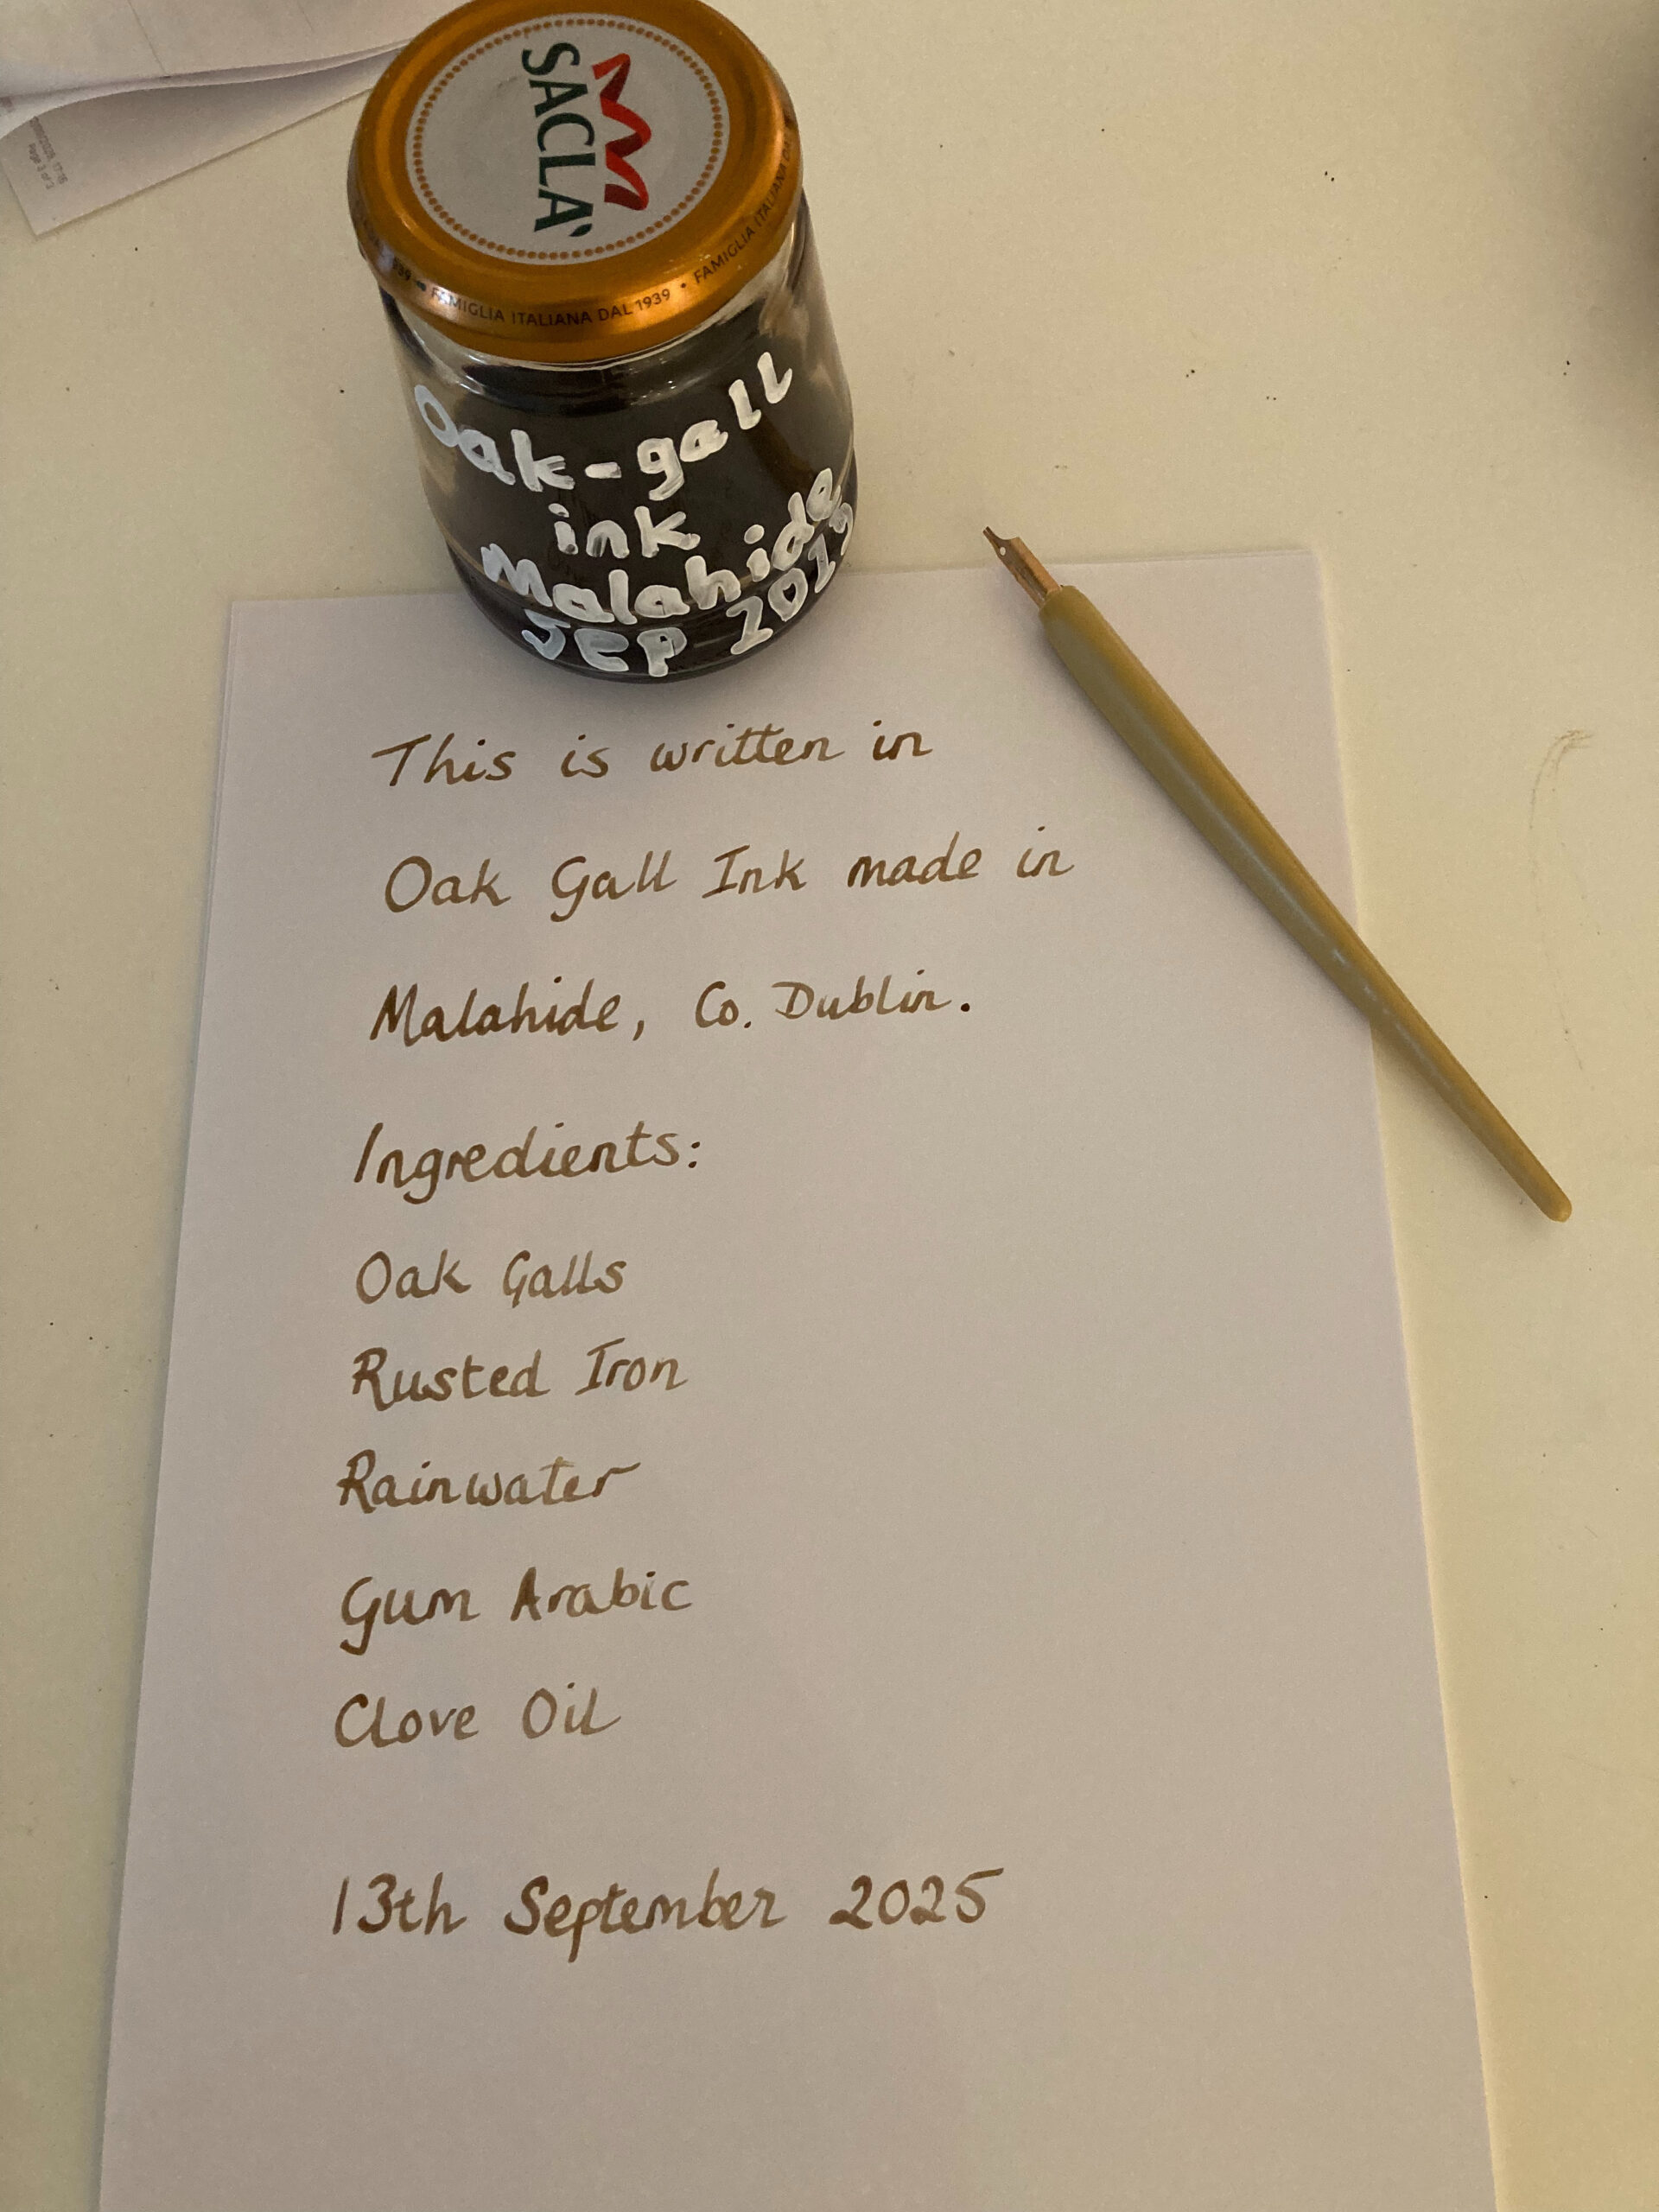 Page 3 of 3
SACLÀ
FAMIGLIA ITALIANA DAL 1939 • FAMIGLIA ITALIANA DAL
Oak-gall
ink
Malahide
SEP 2019
This is written in
Oak Gall Ink made in
Malahide, Co. Dublin.
Ingredients:
Oak Galls
Rusted Iron
Rainwater
Gum Arabic
Clove Oil
13th September 2025